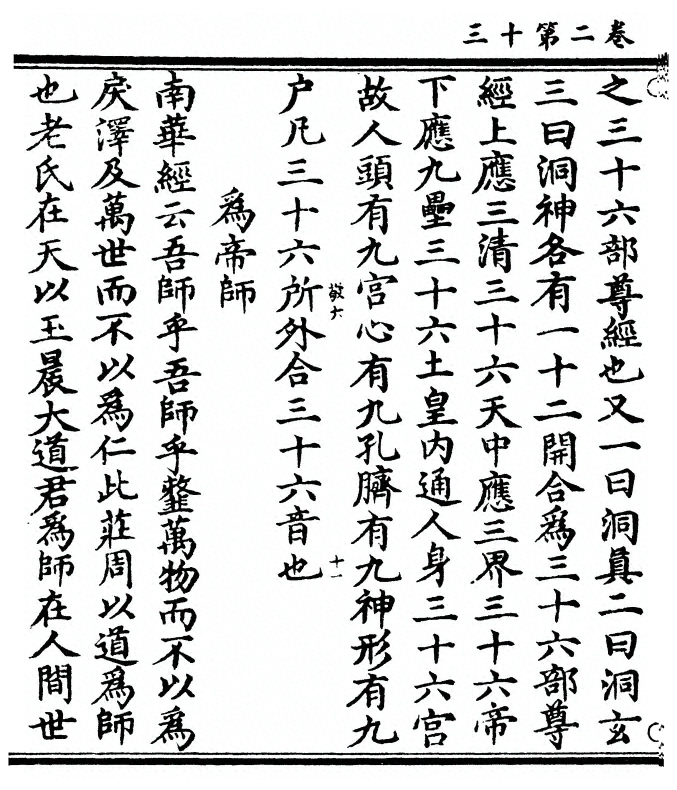 卷二第十三
之三十六部尊經也又一曰洞真二曰洞玄
三曰洞神各有一十二開合爲三十六部尊
經上應三清三十六天中應三界三十六帝
下應九壘三十六土皇內通人身三十六宮
故人頭有九宮心有九孔臍有九神形有九
户凡三十六所外合三十六音也
敬六
十一
爲帝師
南華經云吾師乎吾師乎鏊萬物而不以爲
戾澤及萬世而不以爲仁此莊周以道爲師
也老氏在天以玉晨大道君爲師在人間世